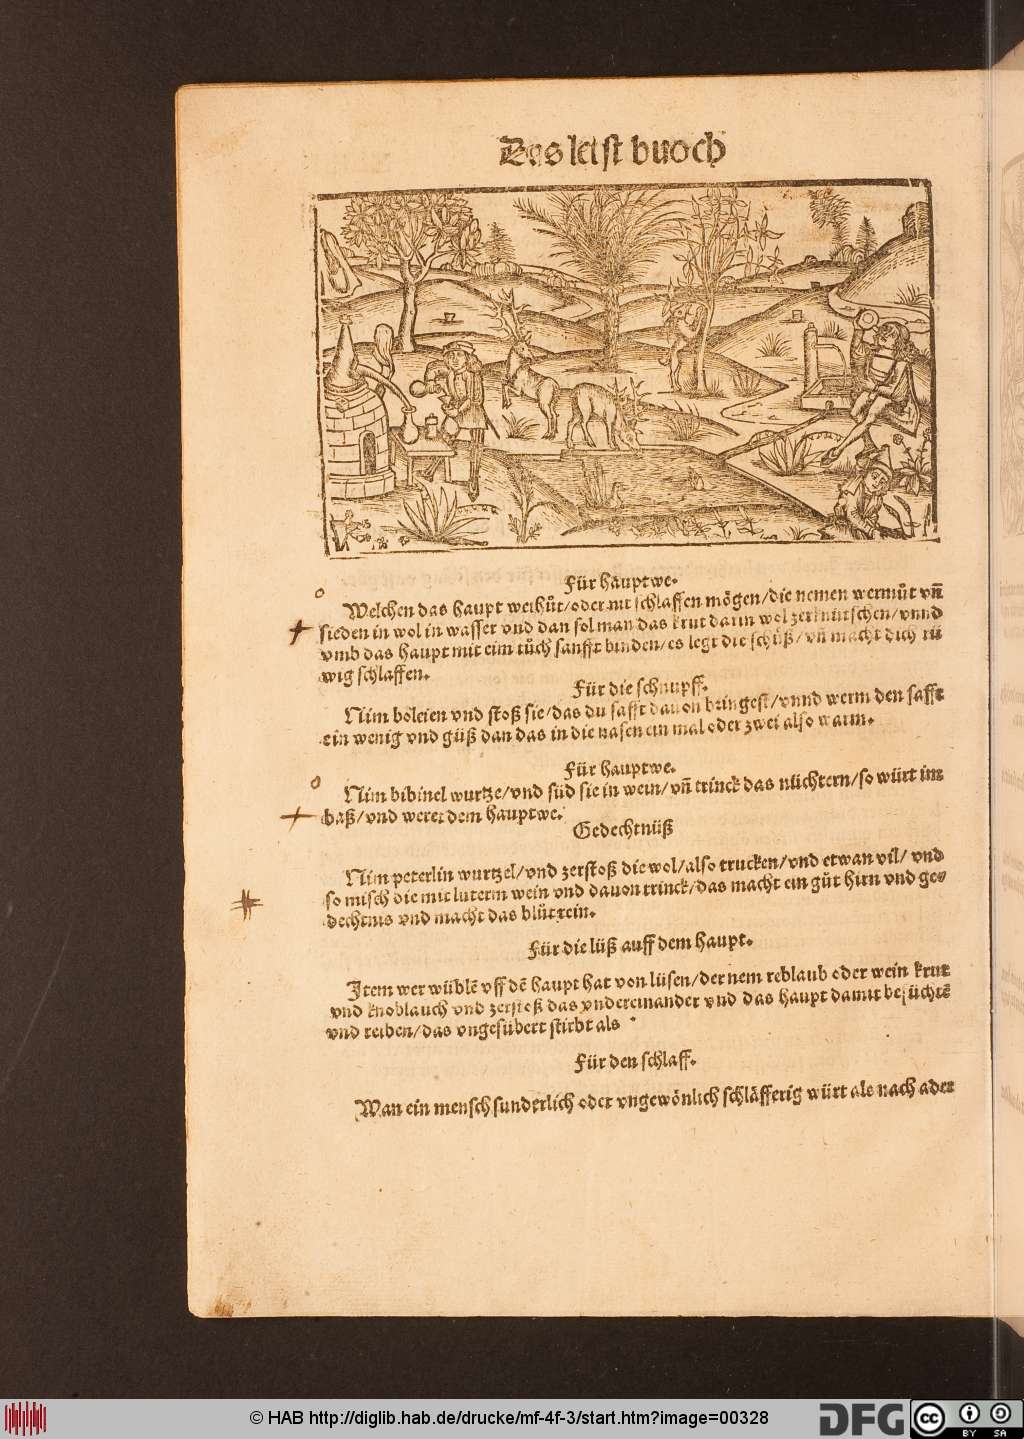 Das letst buoch
Für hauptwe.
Welchen das haupt wethuͦt/oder nit schlaffen mögen/die nemen wermuͦt vñ
sieden in wol in wasser vnd dan sol man das krut darin wol zerknütschen/vnnd
vmb das haupt mit eim tuͦch sanfft binden/es legt die schüß/vñ macht dich rü
wig schlaffen.
Für die schnupff.
Nim boleien vnd stoß sie/das du safft dauon bringest/vnnd werm den safft
ein wenig vnd güß dan das in die nasen ein mal oder zwei also warm.
Für hauptwe.
Nim bibinel wurtze/vnd süd sie in wein/vñ trinck das nüchtern/so würt im
baß/vnd weret dem hauptwe.
Gedechtnüß
Nim peterlin wurtzel/vnd zerstoß die wol/also trucken/vnd etwan vil/vnd
so misch die mit luterm wein vnd dauon trinck/das macht ein guͦt hirn vnd ge⸗
dechtnis vnd macht das bluͦt rein.
Für die lüß auff dem haupt.
Item wer wüblē vff dē haupt hat von lüsen/der nem reblaub oder wein krut
vnd knoblauch vnd zerstoß das vndereinander vnd das haupt damit befüchtē
vnd reiben/das vngesübert stirbt als
Für den schlaff.
Wan ein mensch sunderlich oder vngewönlich schläfferig würt als nach ader
© HAB http://diglib.hab.de/drucke/mf-4f-3/start.htm?image=00328
DFG
cc
BY SA